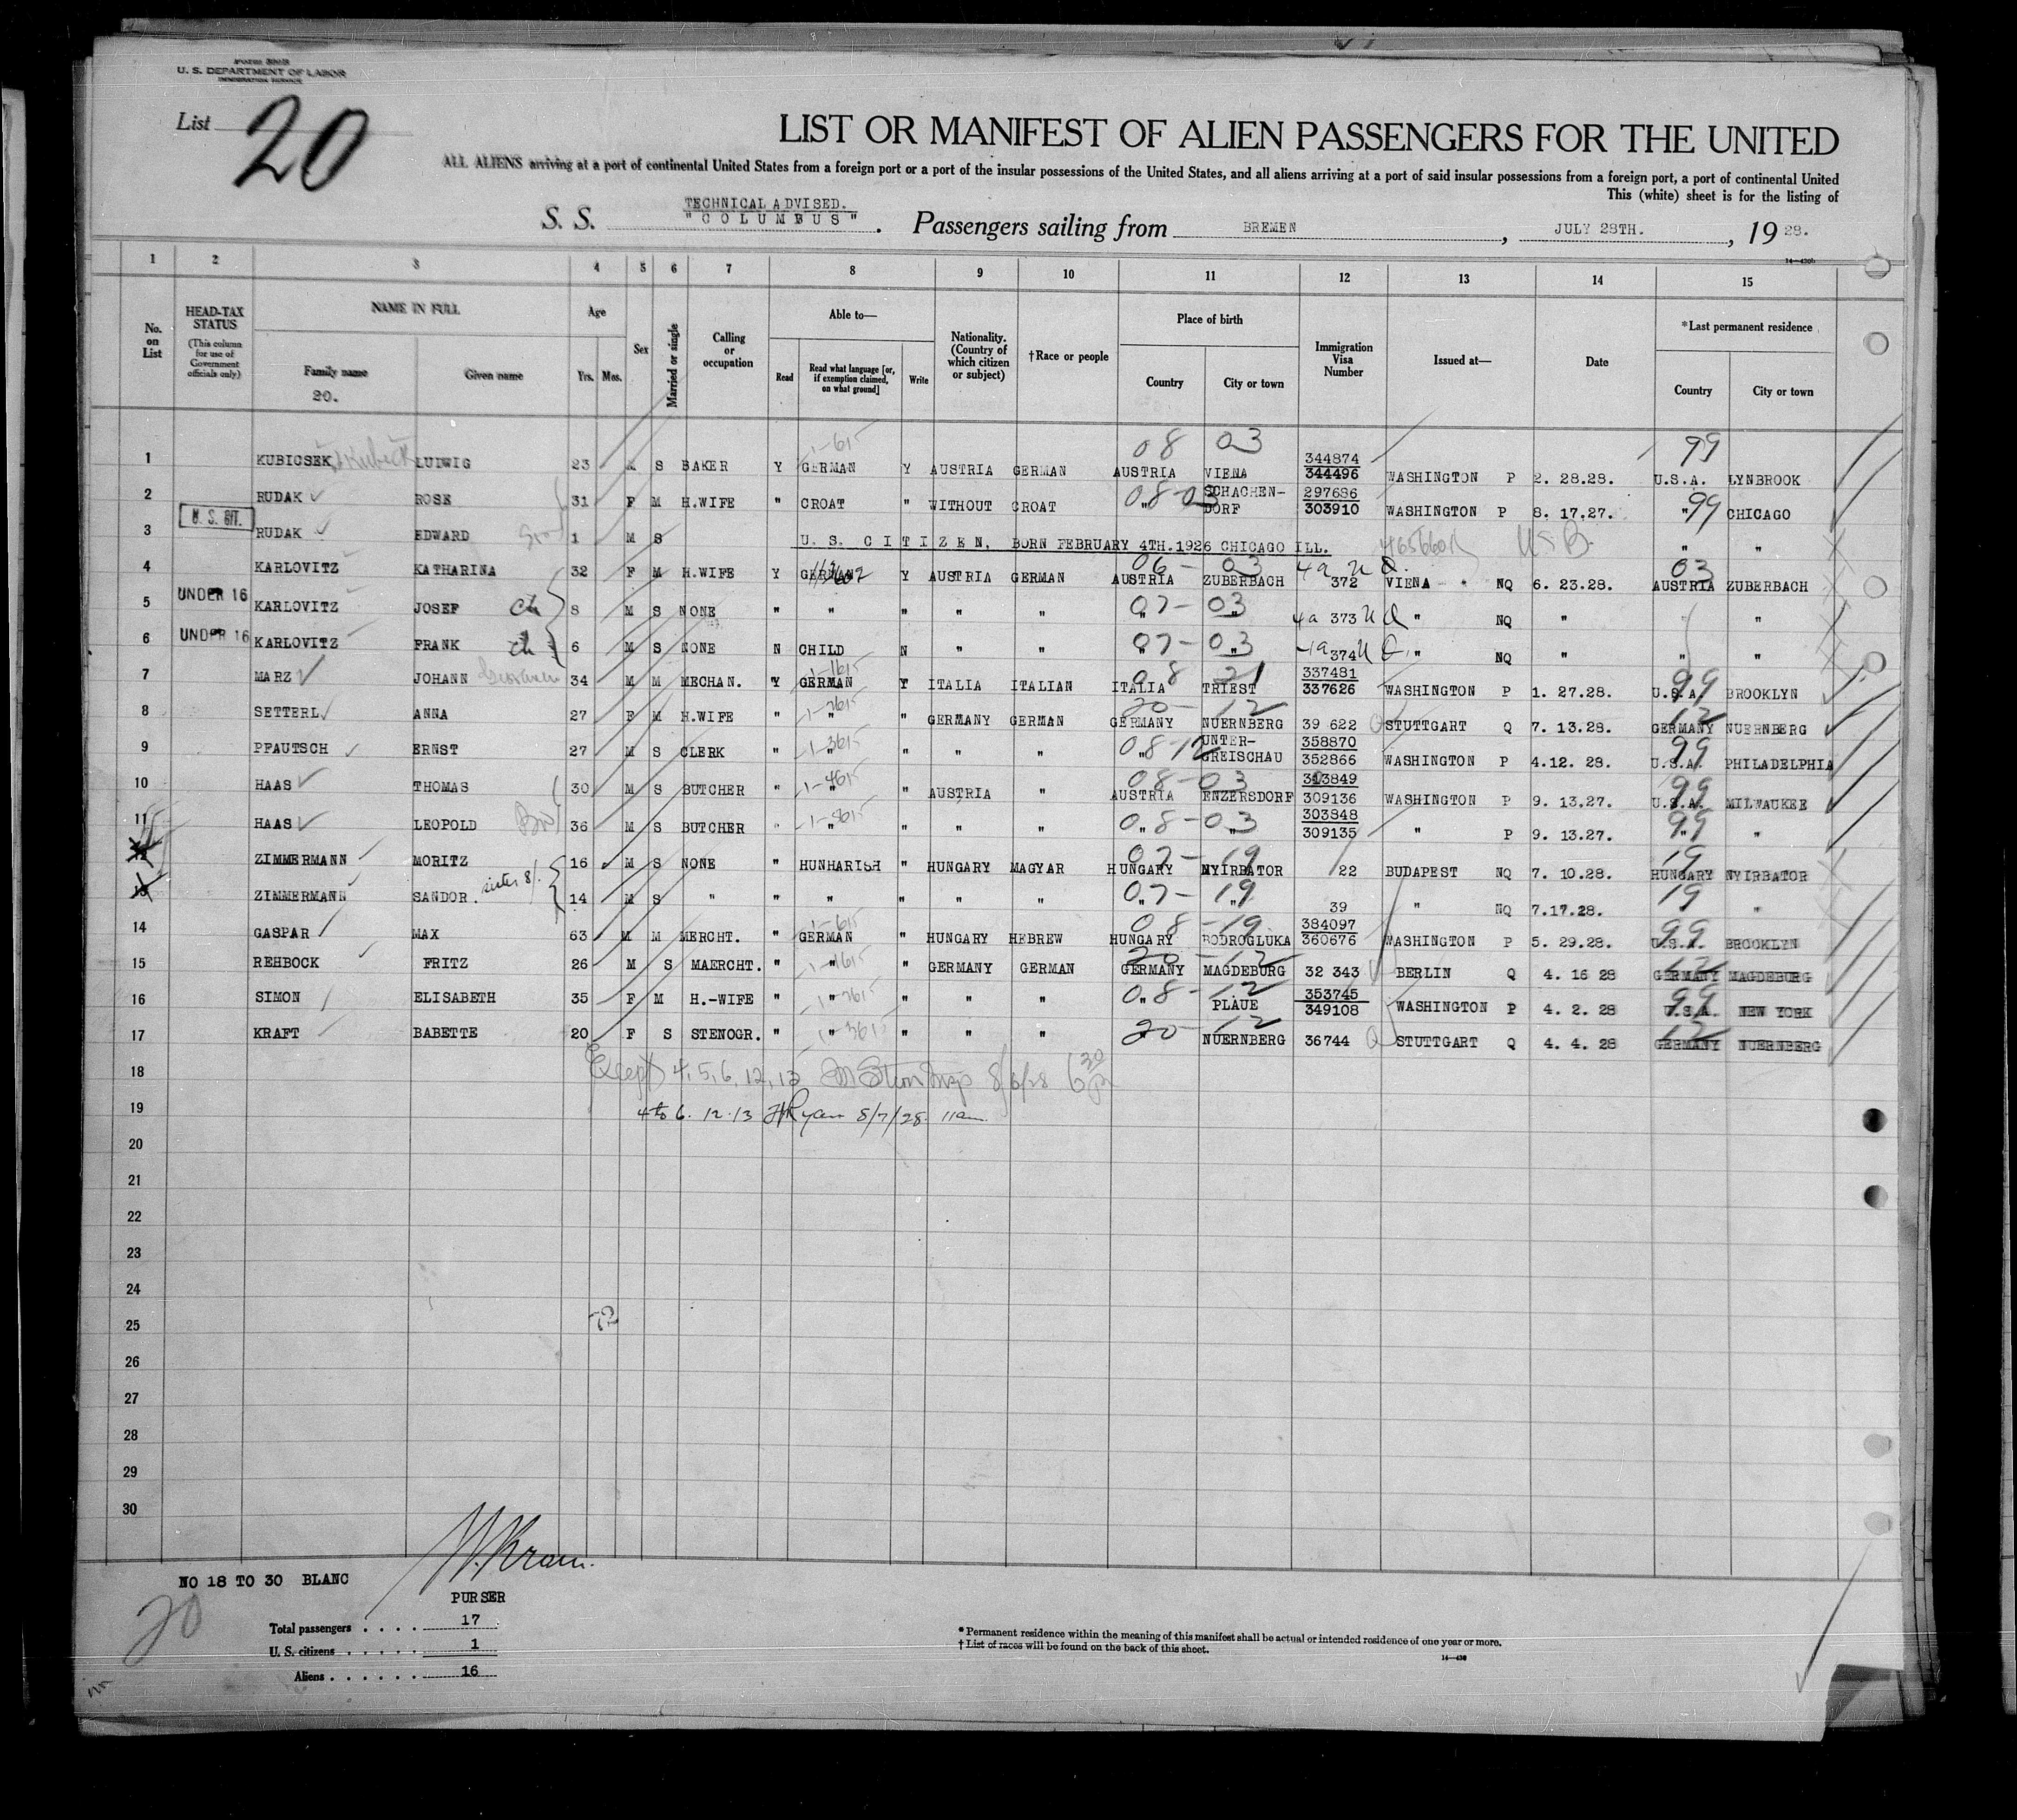 FORM 500B
U. S. DEPARTMENT OF LABOR
IMMIGRATION SERVICE
List 20
LIST OR MANIFEST OF ALIEN PASSENGERS FOR THE UNITED
ALL ALIENS arriving at a port of continental United States from a foreign port or a port of the insular possessions of the United States, and all aliens arriving at a port of said insular possessions from a foreign port, a port of continental United
This (white) sheet is for the listing of
TECHNICAL ADVISED.
S. S. "COLUMBUS". Passengers sailing from BREMEN, JULY 28TH., 1928.
1 2 3 4 5 6 7 8 9 10 11 12 13 14 15
No. on List
HEAD-TAX STATUS (This column for use of Government officials only)
NAME IN FULL
Family name
20.
Given name
Age
Yrs. Mos.
Sex
Married or single
Calling or occupation
Able to—
Read
Read what language [or, if exemption claimed, on what ground]
Write
Nationality. (Country of which citizen or subject)
†Race or people
Place of birth
Country
City or town
Immigration Visa Number
Issued at—
Date
*Last permanent residence
Country
City or town
08 03 99
1 KUBICSEK LUDWIG 23 M S BAKER Y GERMAN Y AUSTRIA GERMAN AUSTRIA VIENA 344874 344496 WASHINGTON P 2. 28.28. U.S.A. LYNBROOK
2 RUDAK ROSE 31 F M H.WIFE " CROAT " WITHOUT CROAT 08-03 " SCHACHEN-DORF 297686 303910 WASHINGTON P 8. 17.27. " 99 CHICAGO
U. S. CIT.
3 RUDAK EDWARD 1 M S U. S. CITIZEN, BORN FEBRUARY 4TH.1926 CHICAGO ILL. USB. " "
4 KARLOVITZ KATHARINA 32 F M H.WIFE Y GERMAN Y AUSTRIA GERMAN 06-03 AUSTRIA ZUBERBACH 372 VIENA NQ 6. 23.28. 03 AUSTRIA ZUBERBACH
UNDER 16
5 KARLOVITZ JOSEF ch 8 M S NONE " " " " " 07-03 " " 4a 373 " NQ " " "
UNDER 16
6 KARLOVITZ FRANK ch 6 M S NONE N CHILD N " " 07-03 " " 374 " NQ " " "
7 MARZ JOHANN 34 M M MECHAN. Y GERMAN Y ITALIA ITALIAN 08 21 ITALIA TRIEST 337481 337626 WASHINGTON P 1. 27.28. 99 U.S.A. BROOKLYN
8 SETTERL ANNA 27 F M H.WIFE " " " GERMANY GERMAN 20-12 GERMANY NUERNBERG 39 622 STUTTGART Q 7. 13.28. 12 GERMANY NUERNBERG
9 PFAUTSCH ERNST 27 M S CLERK " " " " " 08-12 " UNTER-GREISCHAU 358870 352866 WASHINGTON P 4.12. 28. 99 U.S.A. PHILADELPHIA
10 HAAS THOMAS 30 M S BUTCHER " " " AUSTRIA " 08-03 AUSTRIA ENZERSDORF 303849 309136 WASHINGTON P 9. 13.27. 99 U.S.A. MILWAUKEE
11 HAAS LEOPOLD Bro 36 M S BUTCHER " " " " " 08-03 " " 303848 309135 " P 9. 13.27. 99 " "
12 ZIMMERMANN MORITZ 16 M S NONE " HUNHARISH " HUNGARY MAGYAR 07-19 HUNGARY NYIRBATOR 22 BUDAPEST NQ 7. 10.28. 19 HUNGARY NYIRBATOR
13 ZIMMERMANN SANDOR. 14 M S " " " " " " 07-19 " " 39 " NQ 7.17.28. 19 "
14 GASPAR MAX 63 M M MERCHT. " GERMAN " HUNGARY HEBREW 08-19 HUNGARY BODROGLUKA 384097 360676 WASHINGTON P 5. 29.28. 99 U.S.A. BROOKLYN
15 REHBOCK FRITZ 26 M S MAERCHT. " " " GERMANY GERMAN 20-12 GERMANY MAGDEBURG 32 343 BERLIN Q 4. 16 28 12 GERMANY MAGDEBURG
16 SIMON ELISABETH 35 F M H.-WIFE " " " " " 08-12 " PLAUE 353745 349108 WASHINGTON P 4. 2. 28 99 U.S.A. NEW YORK
17 KRAFT BABETTE 20 F S STENOGR. " " " " " 20-12 NUERNBERG 36744 STUTTGART Q 4. 4. 28 12 GERMANY NUERNBERG
18 Except 4, 5, 6, 12, 13 8/6/28 6 30
19 4 to 6. 12. 13 Ryan 8/7/28. 11am.
20
21
22
23
24
25
26
27
28
29
30
NO 18 TO 30 BLANC
PURSER
20
Total passengers . . . . 17
U. S. citizens . . . . . 1
Aliens . . . . . . 16
* Permanent residence within the meaning of this manifest shall be actual or intended residence of one year or more.
† List of races will be found on the back of this sheet.